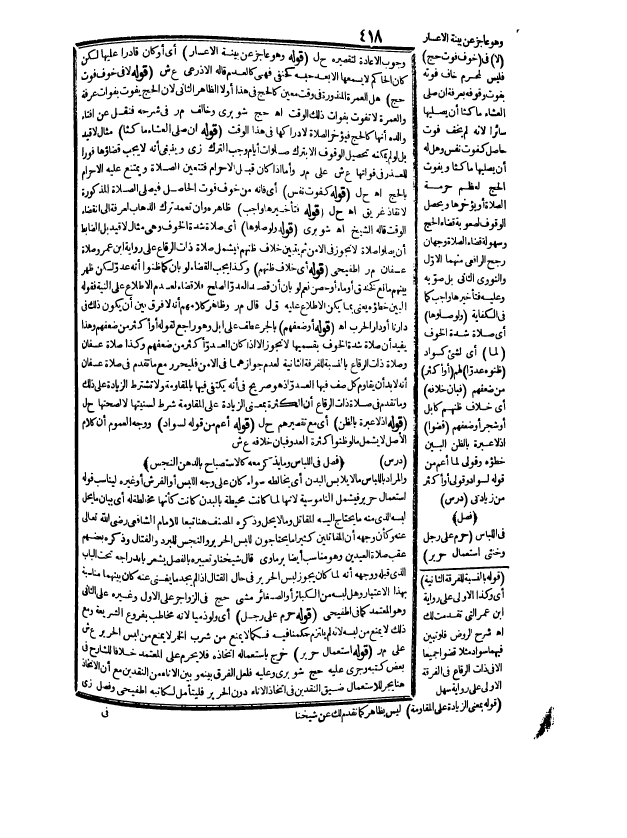 ٤١٨
وهو عاجز عن بينة الاعسار
(لا) فى (خوف فوت حج)
فليس لمحرم خاف فوته
بفوت وقوفه بعرفة ان صلى
العشاء ماكثا أن يصليها
سائرا لانه لم يخف فوت
حاصل كفوت نفس وهل له
أن يصليها ماكثا ويفوت
الحج لعظم حرمة
الصلاة أو يؤخرها ويحصل
الوقوف لصعوبة قضاء الحج
وسهولة قضاء الصلاة وجهان
رجح الرافعى منهما الاول
والنووى الثانى بل صوبه
وعليه فتأخيرها واجب كما
فى الكفاية (ولو صلوها)
أى صلاة شدة الخوف
(لما) أى لشئ كسواد
(ظنوه عدوا) لهم (أو أكثر)
من ضعفهم (فبان خلافه)
أى خلاف ظنهم كابل
أو شجر أو ضعفهم (قضوا)
اذ لا عبرة بالظن البين
خطؤه وقولى لما أعم من
قوله لسواد وقولى أو أكثر
من زيادتى (درس)
﴿فصل﴾
فى اللباس (حرم على رجل
وخنثى استعمال حرير)
(قوله بالنسبة للفرقة الثانية)
أى وكذا الاولى على رواية
ابن عمر التى تقدمت لك
اه شرح الروض فلو تبين
فيها سواد مثلا قضوا جميعا
الا فى ذات الرقاع فى الفرقة
الاولى على رواية سهل
(قوله بمعنى الزيادة على المقاومة) ليس بظاهر كما تقدم لك عن شيخنا
وجوب الاعادة لتقصيره ح ل (قوله وهو عاجز عن بينة الاعسار) أى أو كان قادرا عليها لكن
كان الحاكم لا يسمعها الا بعد حبسه فهى كالعدم قاله الاذرعى ع ش (قوله لا فى خوف فوت
حج) هل العمرة المنذورة فى وقت معين كالحج فى هذا أولا الظاهر الثانى لان الحج يفوت بفوات عرفة
والعمرة لا تفوت بفوات ذلك الوقت اه حج شوبرى وخالف م ر فى شرحه فنقل عن افتاء
والده أنها كالحج فيؤخر الصلاة لادراكها فى هذا الوقت (قوله ان صلى العشاء ماكثا) مثال لا قيد
بل لو لم يمكنه تحصيل الوقوف الا بترك صلوات أيام وجب الترك زى وينبغى أنه لا يجب قضاؤها فورا
للعذر فى فواتها ع ش على م ر وأما اذا كان قبل الاحرام فتتعين الصلاة ويمتنع عليه الاحرام
بالحج اه ح ل (قوله كفوت نفس) أى فانه من خوف فوت الحاصل فيصلى الصلاة المذكورة
لانقاذ غريق اه ح ل (قوله فتأخيرها واجب) ظاهره وان تعمد ترك الذهاب لعرفة الى انقضاء
الوقت قاله الشيخ اه شوبرى (قوله ولو صلوها) أى صلاة شدة الخوف وهى مثال لا قيد بل الضابط
أن يصلوا صلاة لا يجوز فى الامن ثم يتبين خلاف ظنهم ليشمل صلاة ذات الرقاع على رواية ابن عمر وصلاة
عسفان اه اطفيحى (قوله أى خلاف ظنهم) وكذا يجب القضاء لو بان كما ظنوا أنه عدو لكن ظهر
بينهم مانع كخندق أو ماء أو حصن نعم لو بان أن قصد العدو الصلح فلا قضاء لعدم الاطلاع على النية فقوله
البين خطؤه يعنى بما يمكن الاطلاع عليه ق ل قال م ر وظاهر كلامهم أنه لا فرق بين أن يكون ذلك فى
دارنا أو دار الحرب اه (قوله أو ضعفهم) بالجر عطف على ابل وهو راجع لقوله أو أكثر من ضعفهم وهذا
يفيد أن صلاة شدة الخوف بقسميها لا تجوز الا اذا كان العدو أكثر من ضعفهم وكذا صلاة عسفان
وصلاة ذات الرقاع بالنسبة للفرقة الثانية لعدم جوازهما فى الامن فليحرر مع ما تقدم فى صلاة عسفان
أنه لا بد أن يقاوم كل صف فيها العدو اذ هو صريح فى أنه يكتفى فيها بالمقاومة ولا تشترط الزيادة على ذلك
وما تقدم فى صلاة ذات الرقاع أن الكثرة بمعنى الزيادة على المقاومة شرط لسنيتها لا لصحتها ح ل
(قوله اذ لا عبرة بالظن) أى مع تقصيرهم ح ل (قوله أعم من قوله لسواد) ووجه العموم أن كلام
الأصل لا يشمل ما لو ظنوا كثرة العدو فبان خلافه ع ش
(درس) ﴿فصل فى اللباس وما يذكر معه كالاستصباح بالدهن النجس﴾
والمراد باللباس ما لا يلابس البدن أى يخالطه سواء كان على وجه اللبس أو الفرش أو غيره ليناسب قوله
استعمال حرير فيشمل الناموسية لانها لما كانت محيطة بالبدن كانت كأنها مخالطة له أى بيان ما يحل
لبسه الذى منه ما يحتاج اليه المقاتل وما لا يحل وذكره المصنف هنا تبعا للامام الشافعى رضى الله تعالى
عنه وكأن وجهه أن المقاتلين كثيرا ما يحتاجون للبس الحرير والنجس للبرد والقتال وذكره بعضهم
عقب صلاة العيدين وهو مناسب أيضا برماوى قال شيخنا وتعبيره بالفصل يشعر باندراجه تحت الباب
الذى قبله ووجهه أنه لما كان يجوز لبس الحرير فى حال القتال اذا لم يجد ما يغنى عنه كان بينهما مناسبة
بهذا الاعتبار وهل لبسه من الكبائر أو الصغائر مشى حج فى الزواجر على الاول وغيره على الثانى
وهو المعتمد كما فى اطفيحى (قوله حرم على رجل) أى ولو ذميا لانه مخاطب بفروع الشريعة ومع
ذلك لا يمنع من لبسه لانه لم يلتزم حكمنا فيه فكما لا يمنع من شرب الخمر لا يمنع من لبس الحرير ع ش
على م ر (قوله استعمال حرير) خرج باستعماله اتخاذه فلا يحرم على المعتمد خلافا للشارح فى
بعض كتبه وجرى عليه حج شوبرى وعليه فلعل الفرق بينه وبين الاناء من النقدين مع أن الاتخاذ
هنا يجر للاستعمال ضيق النقدين فى اتخاذ الاناء دون الحرير فليتأمل لكاتبه اطفيحى وفصل زى
فى